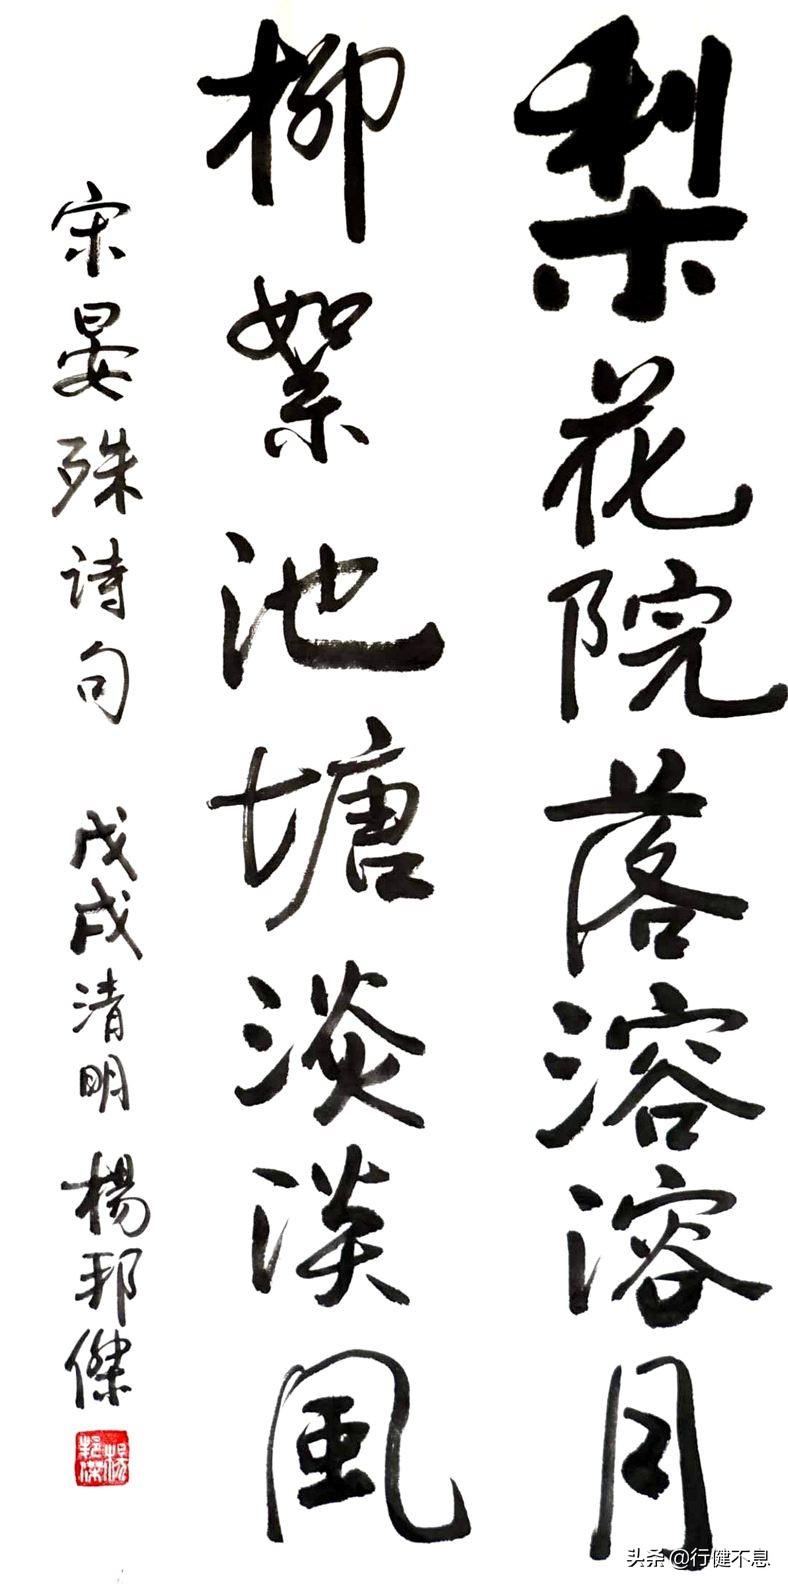 梨花院落溶溶月
柳絮池塘淡淡風
宋晏殊诗句 戊戌清明 楊邦傑
头条 @行健不息